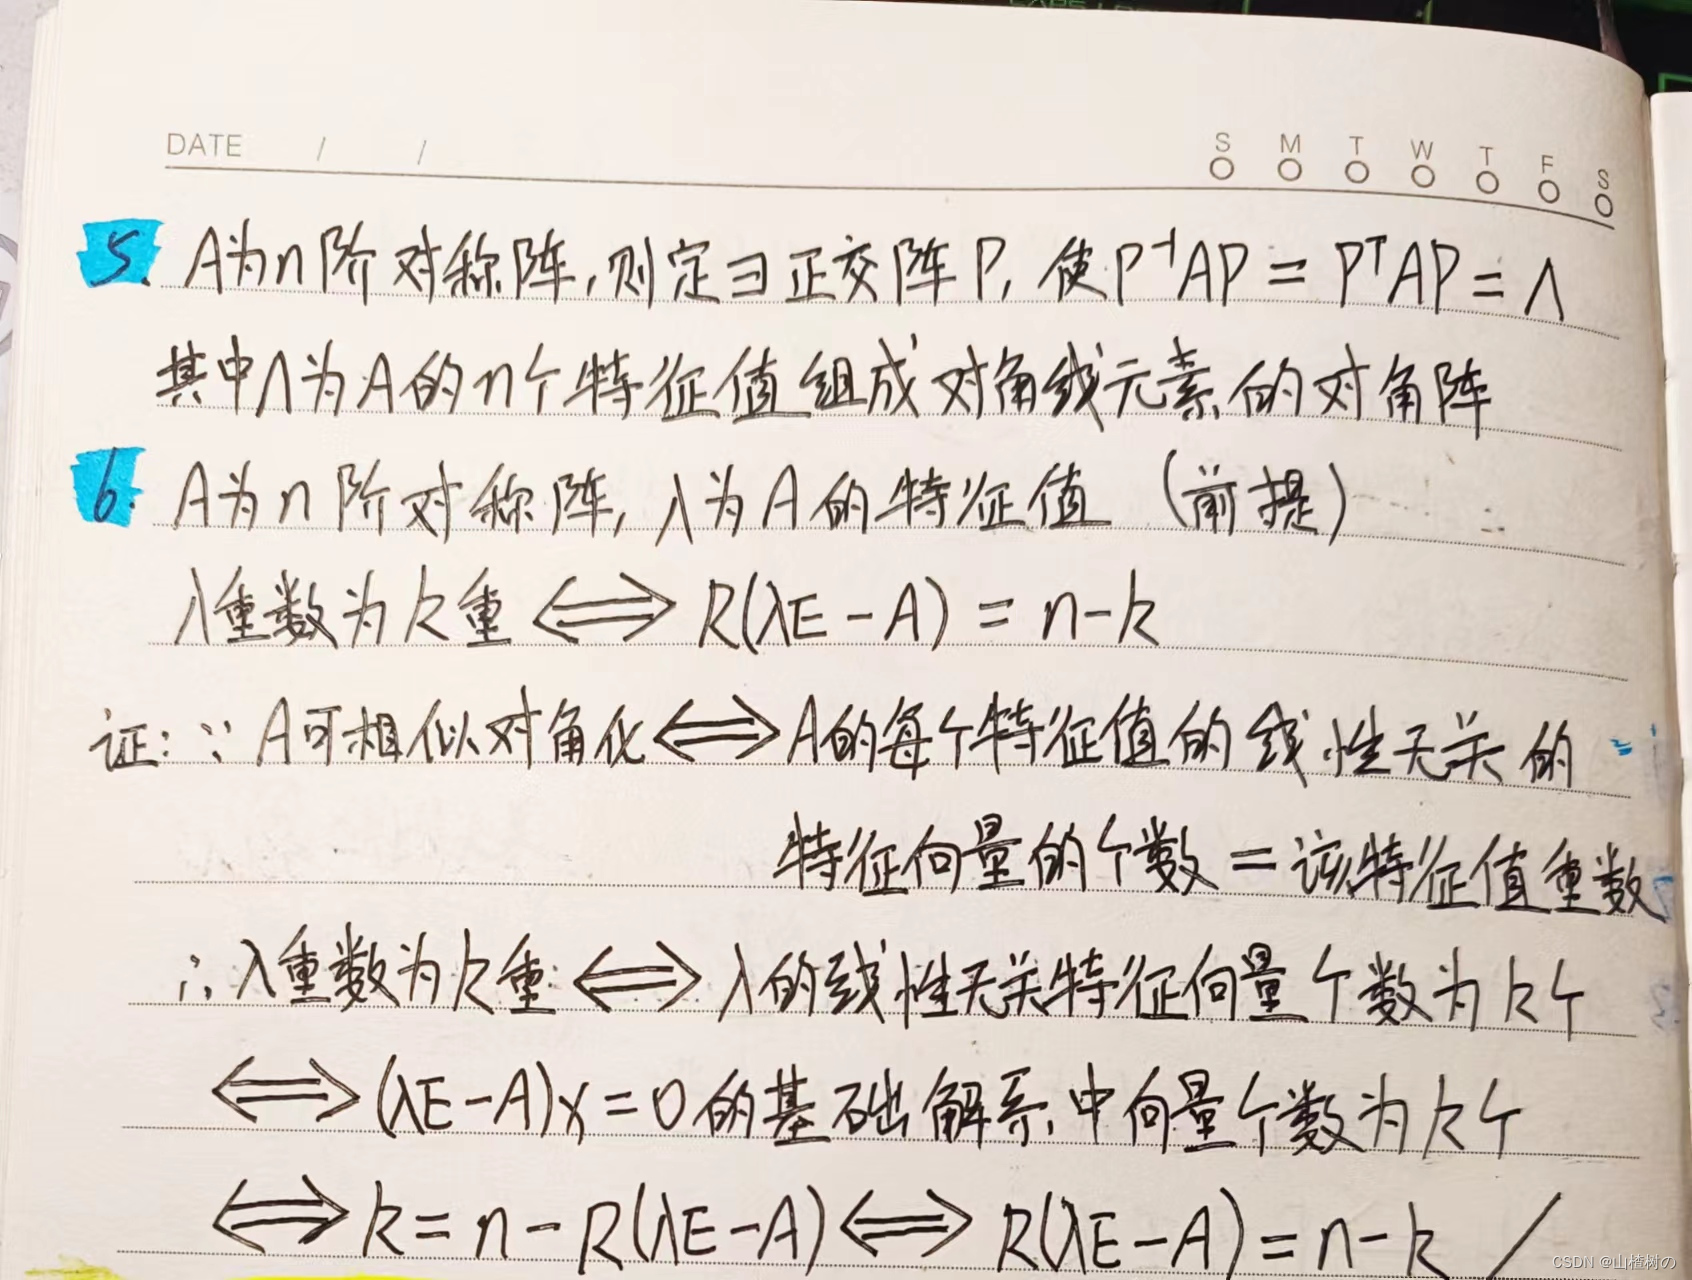 DATE / /
S M T W T F S
5. A为n阶对称阵,则定∃正交阵P, 使P⁻¹AP = PᵀAP = Λ
其中Λ为A的n个特征值组成对角线元素的对角阵
6. A为n阶对称阵, λ为A的特征值 (前提)
λ重数为k重 ⟺ R(λE-A) = n-k
证: ∵ A可相似对角化 ⟺ A的每个特征值的线性无关的
特征向量的个数 = 该特征值重数
∴ λ重数为k重 ⟺ λ的线性无关特征向量个数为k个
⟺ (λE-A)x=0的基础解系中向量个数为k个
⟺ k = n - R(λE-A) ⟺ R(λE-A) = n-k /
CSDN @山楂树の